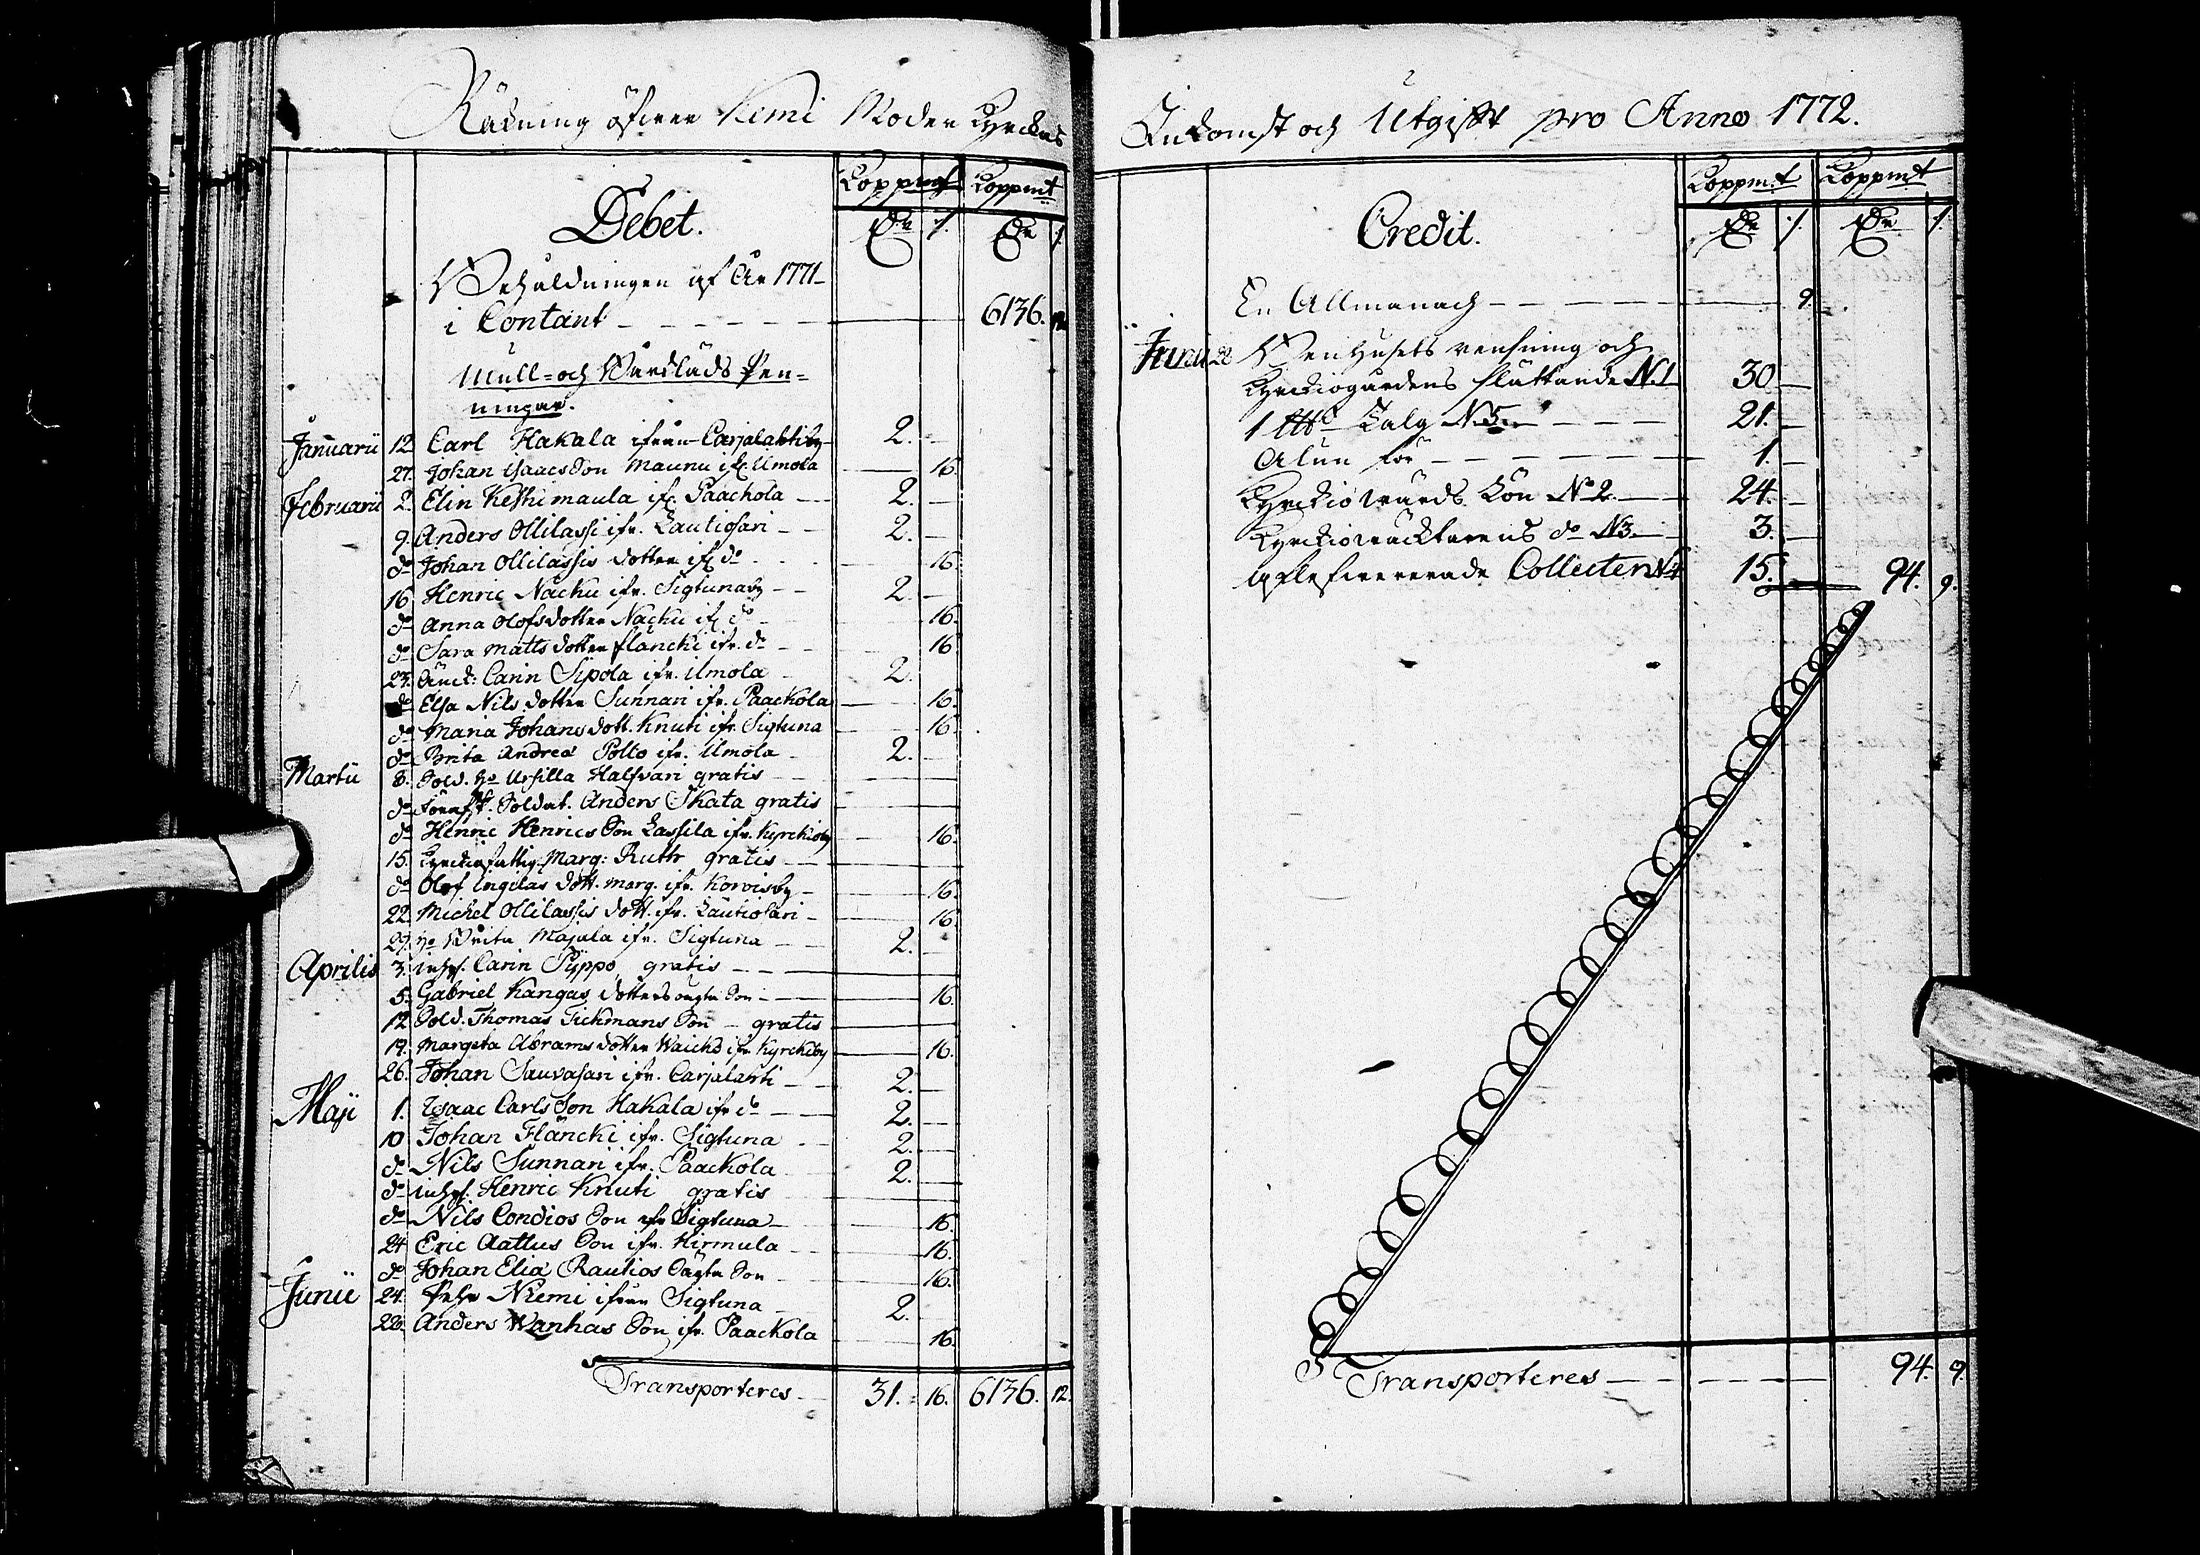 Räkning öfwer Kemi Moder Kyrckas
Kopp.mt Kopp.mt
Debet.
Dr /. Dr /.
Behåldningen af År 1771
i Contant 6136. 12.
Mull- och Pen-
ningar.
Januarii 12. Carl Hakala ifrån Carjalahti by 2.
27. Johan Isaacs Son Maunu ifr. Ilmola 16.
Februarii 2. Elin Keskimaula ifr. Paackola 2.
9. Anders Ollilassi ifr. Lautiosari 2.
do Johan Ollilassis dotter ifr do 16.
16. Henric Nacku ifr. Sigtunaby 2.
do Anna Olofsdotter Nacku ifr do 16.
do Sara Matts dotter Flancki ifr. do 16.
23. Änck: Carin Sipola ifr. Ilmola 2.
do Elsa Nils dotter Sunnari ifr. Paackola 16.
do Maria Johans dott. Knuti ifr Sigtuna 16.
do Brita Andreæ Polto ifr. Ilmola 2.
Martii 8. Sold. H:o Ursilla Halfvari gratis
do Soldat. Anders Skata gratis
do Henric Henrics Son Lassila ifr. Kyrckioby 16.
15. Kyrckiofattig. Marg: Ruth gratis
do Olof Ingilas dott. Marg. ifr. Korvisby 16.
22. Michel Ollilassis dott. ifr. Lautiosari 16.
29. H:o Brita Majala ifr. Sigtuna 2.
Aprilis 3. inhys. Carin Pyppo gratis
5. Gabriel Kangas dotters oägta Son 16.
12. Sold. Thomas Tickmans Son gratis
19. Margeta Abrams dotter Waicko ifr Kyrckoby 16.
26. Johan Sauvasari ifr. Carjalahti 2.
Maji 1. Isaac Carls Son Hakala ifr do 2.
10 Johan Flancki ifr. Sigtuna 2.
do Nils Sunnari ifr. Paackola 2.
do inhys. Henric Knuti gratis
do Nils Condios Son ifr Sigtuna 16.
24 Eric Aattus Son ifr. Hirmula 16.
do Johan Eliæ Rautios Oägta Son 16.
Junii 24. Pehr Niemi ifrån Sigtuna 2.
28. Anders Wanhas Son ifr. Paackola 16.
Transporteres 31. 16. 6136. 12.
Inkomst och Utgift pro Anno 1772.
Kopp.mt Kopp.mt
Credit.
Dr /. Dr /.
En Allmanach 9.
Junii 28 Benhusets rensning och
Kyrckiogårdens slättande N.1 30
1 Talg N.5. 21.
Alun för 1.
Kyrckiowärds Lön No 2. 24.
Kyrckiowäcktarens do N3. 3.
Collecter N4 15. 94. 9.
Transporteres 94. 9.